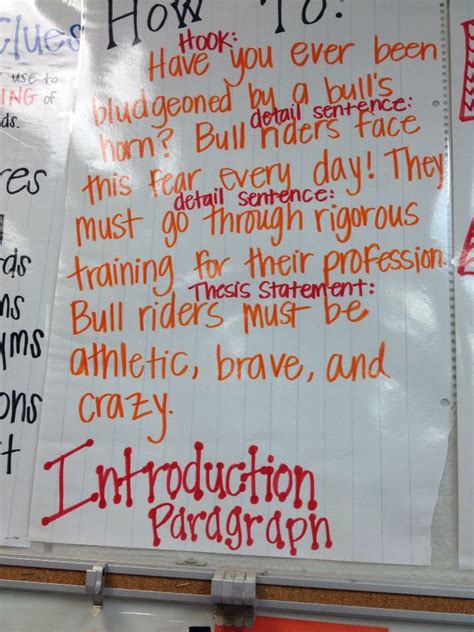 How To:
Hook:
Have you ever been
bludgeoned by a bull's
detail sentence:
horn? Bull riders face
this fear every day! They
detail sentence:
must go through rigorous
training for their profession.
Thesis Statement:
Bull riders must be
athletic, brave, and
crazy.
Introduction
Paragraph
Clues
use to
of